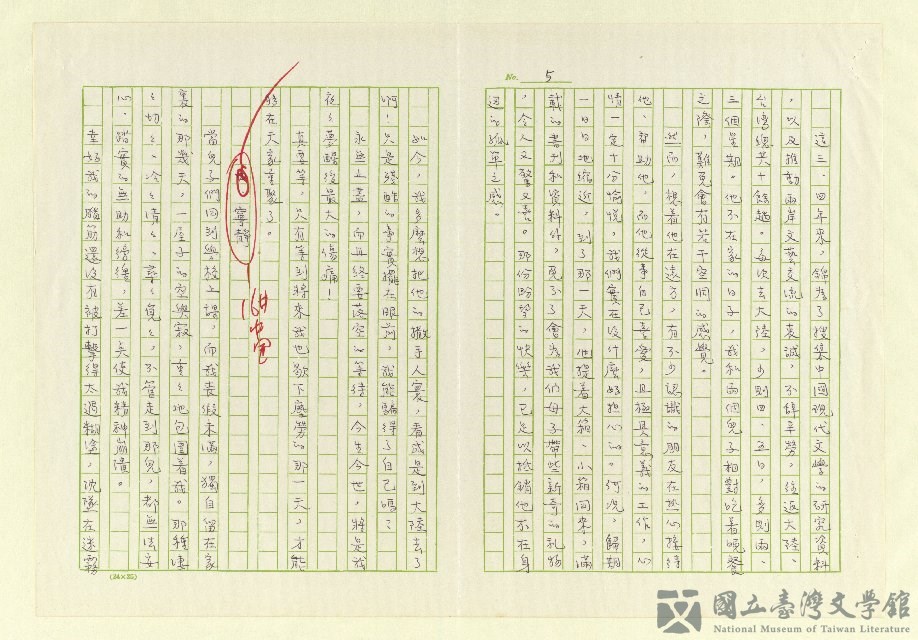 No. 5
這三、四年來,錦為了搜集中國現代文學的研究資料
,以及推動兩岸文藝交流的衷誠,不辭辛勞,往返大陸、
台灣總共十餘趟。每次去大陸,少則四、五日,多則兩、
三個星期。他不在家的日子,我和兩個兒子相對吃著晚餐
之際,難免會有若干空洞的感覺。
然而,想着他在遠方,有不少認識的朋友在熱心接待
他、幫助他,而他從事自己喜愛,且極具意義的工作,心
情一定十分愉悅,我們實在沒什麼好擔心的。何況,歸期
一日日地縮近,到了那一天,他提着大箱、小箱回來,滿
載的書刊和資料外,免不了會為我們母子帶些新奇的禮物
,令人又驚又喜。那份盼望的快樂,已足以抵銷他不在身
邊的孤單之感。
如今,我多麼想把他的撒手人寰,看成是到大陸去了
啊!只是殘酷的事實擺在眼前,我能騙得了自己嗎?
永無止盡,而且終要落空的等待,今生今世,將是我
夜夜夢醒後最大的傷痛!
真要等,只有等到將來我也歇下塵勞的那一天,才能
夠在天家重聚了。
寧靜
16廿中宋
當兒子們回到學校上課,而我喪假未滿,獨自留在家
裏的那幾天,一屋子的空與寂,重重地包圍着我。那種悽
悽切切、冷冷清清、尋尋覓覓,不管走到那兒,都無法安
心、踏實的無助和徬徨,差一點使我精神崩潰。
幸好我的腦筋還沒有被打擊得太過糊塗,沈墜在迷霧
(24×25)
國立臺灣文學館
National Museum of Taiwan Literature